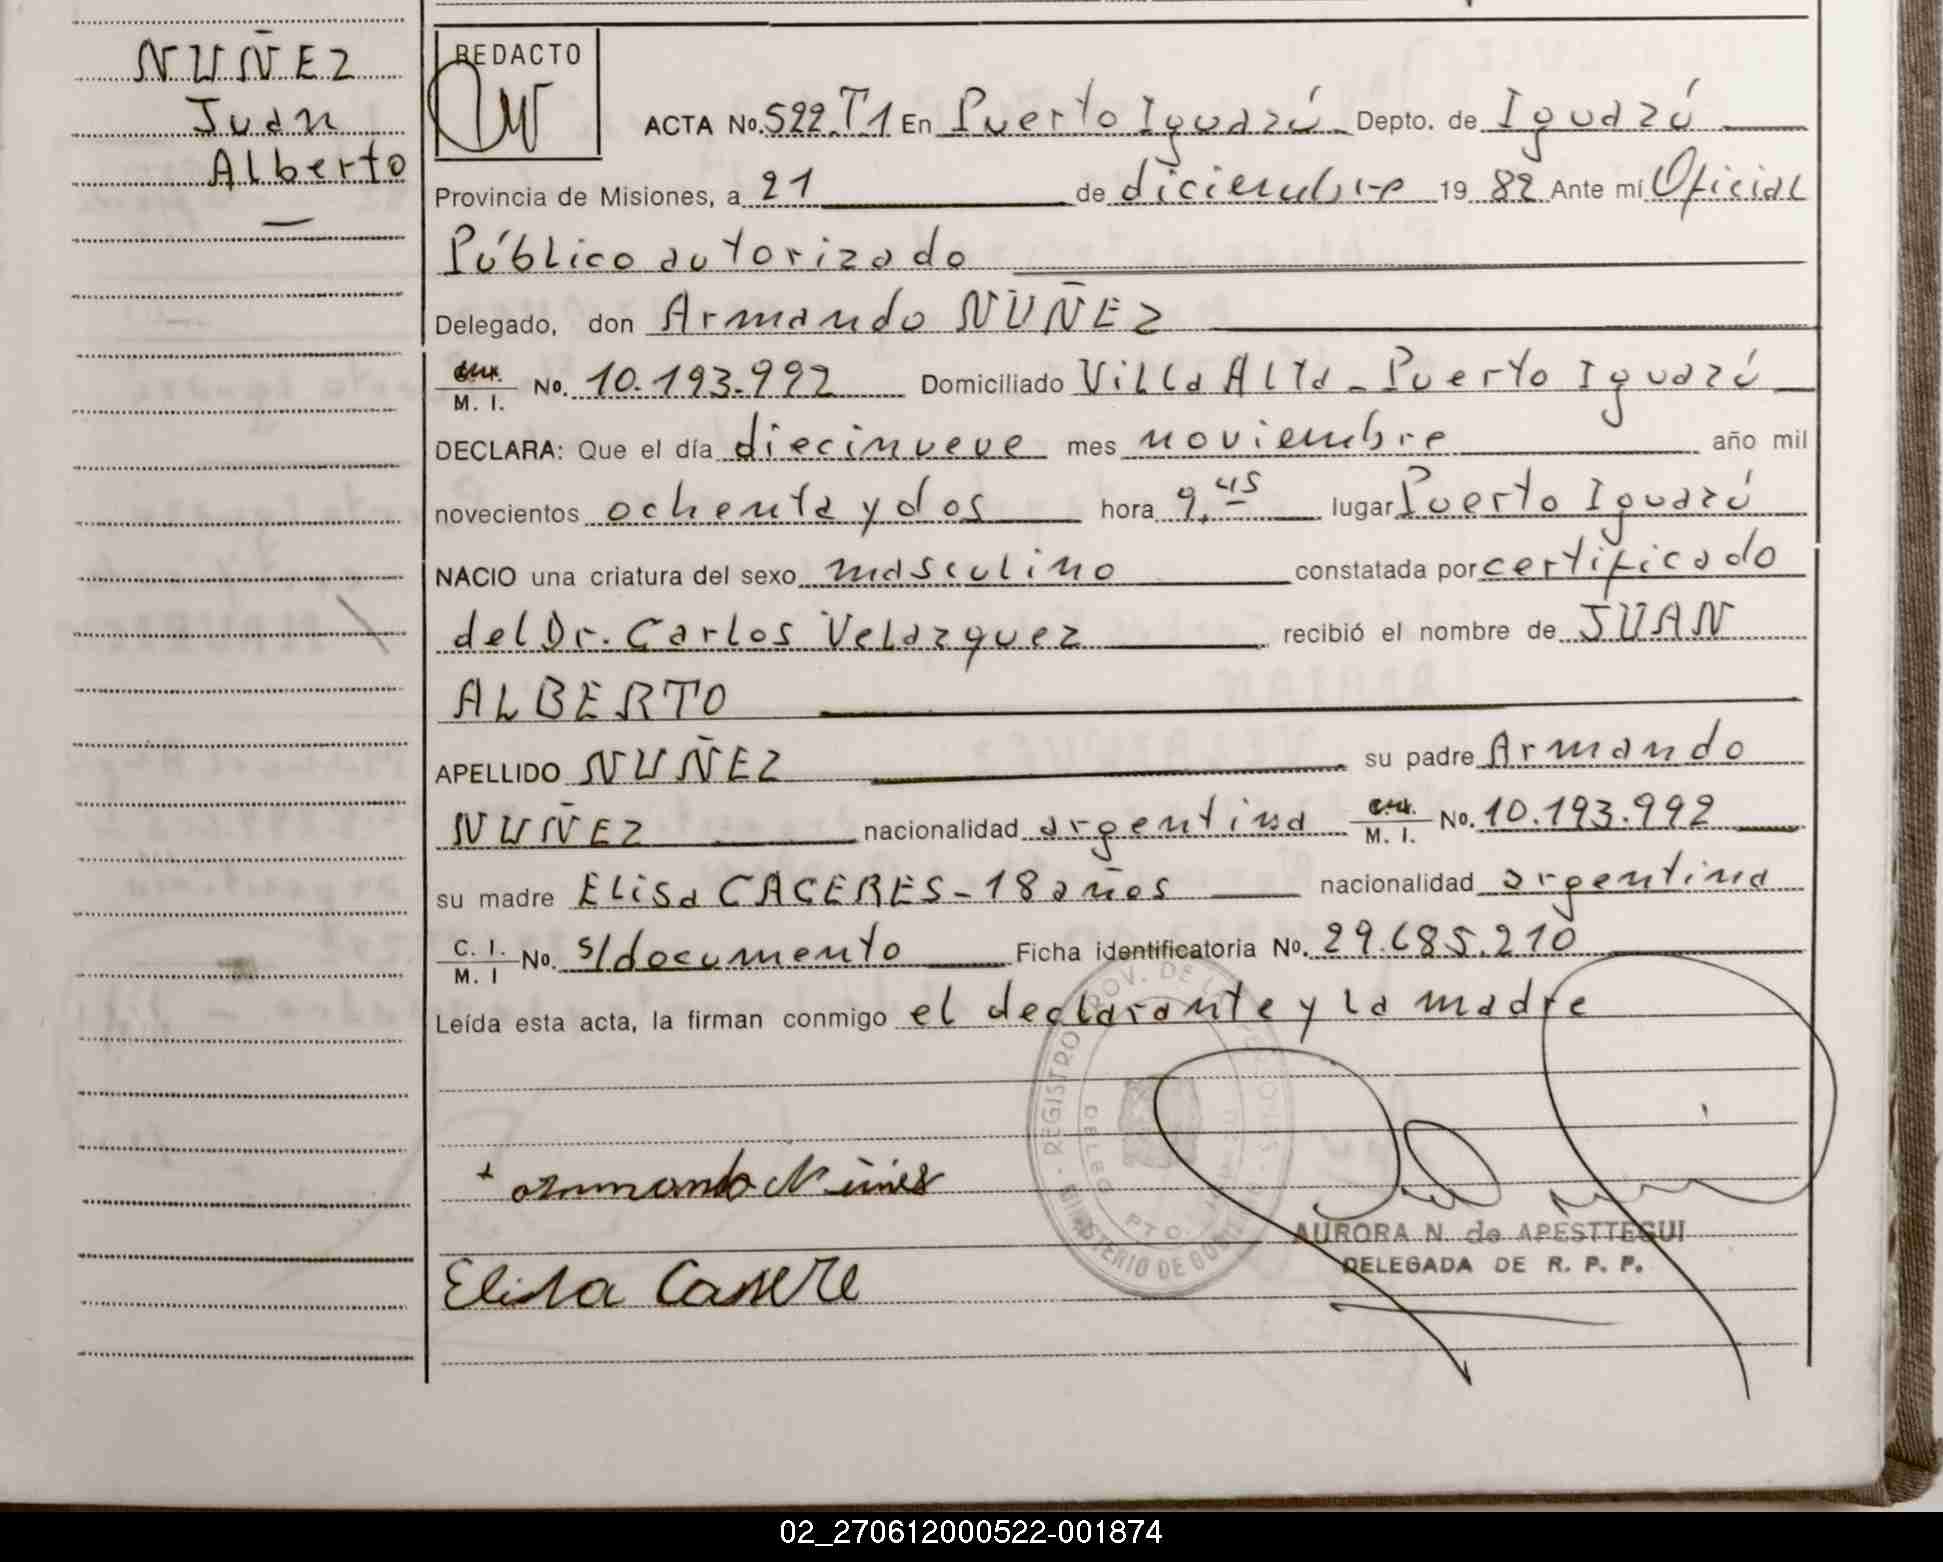 NUÑEZ
Juan
Alberto
REDACTO
ACTA No. 522.T1 En Puerto Iguazú Depto. de Iguazú
Provincia de Misiones, a 21 de diciembre 19 82 Ante mí Oficial
Público autorizado
Delegado, don Armando NUÑEZ
M. I. No. 10.193.992 Domiciliado Villa Alta - Puerto Iguazú
DECLARA: Que el día diecinueve mes noviembre año mil
novecientos ochenta y dos hora 9,45 lugar Puerto Iguazú
NACIO una criatura del sexo masculino constatada por certificado
del Dr. Carlos Velazquez recibió el nombre de JUAN
ALBERTO
APELLIDO NUÑEZ su padre Armando
NUÑEZ nacionalidad argentina M. I. No. 10.193.992
su madre Elisa CACERES - 18 años nacionalidad argentina
C. I. M. I No. s/documento Ficha identificatoria No. 29.685.210
Leída esta acta, la firman conmigo el declarante y la madre
Elisa Casere
AURORA N. de APESTTEGUI
DELEGADA DE R. P. P.
02_270612000522-001874